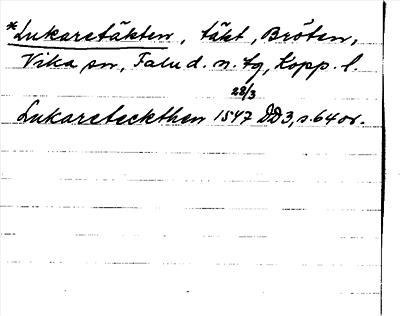 *Lukaretäkten, täkt, Bröten,
Vika sn, Falu d. n. tg, Kopp. l.
28/3
Lukareteckthen 1547 DD3, s. 64 or.